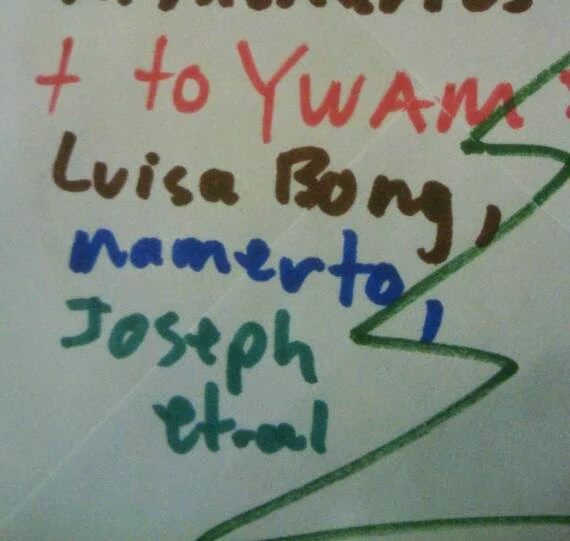 + to YWAM
Luisa Bong,
namerto,
Joseph
et-al